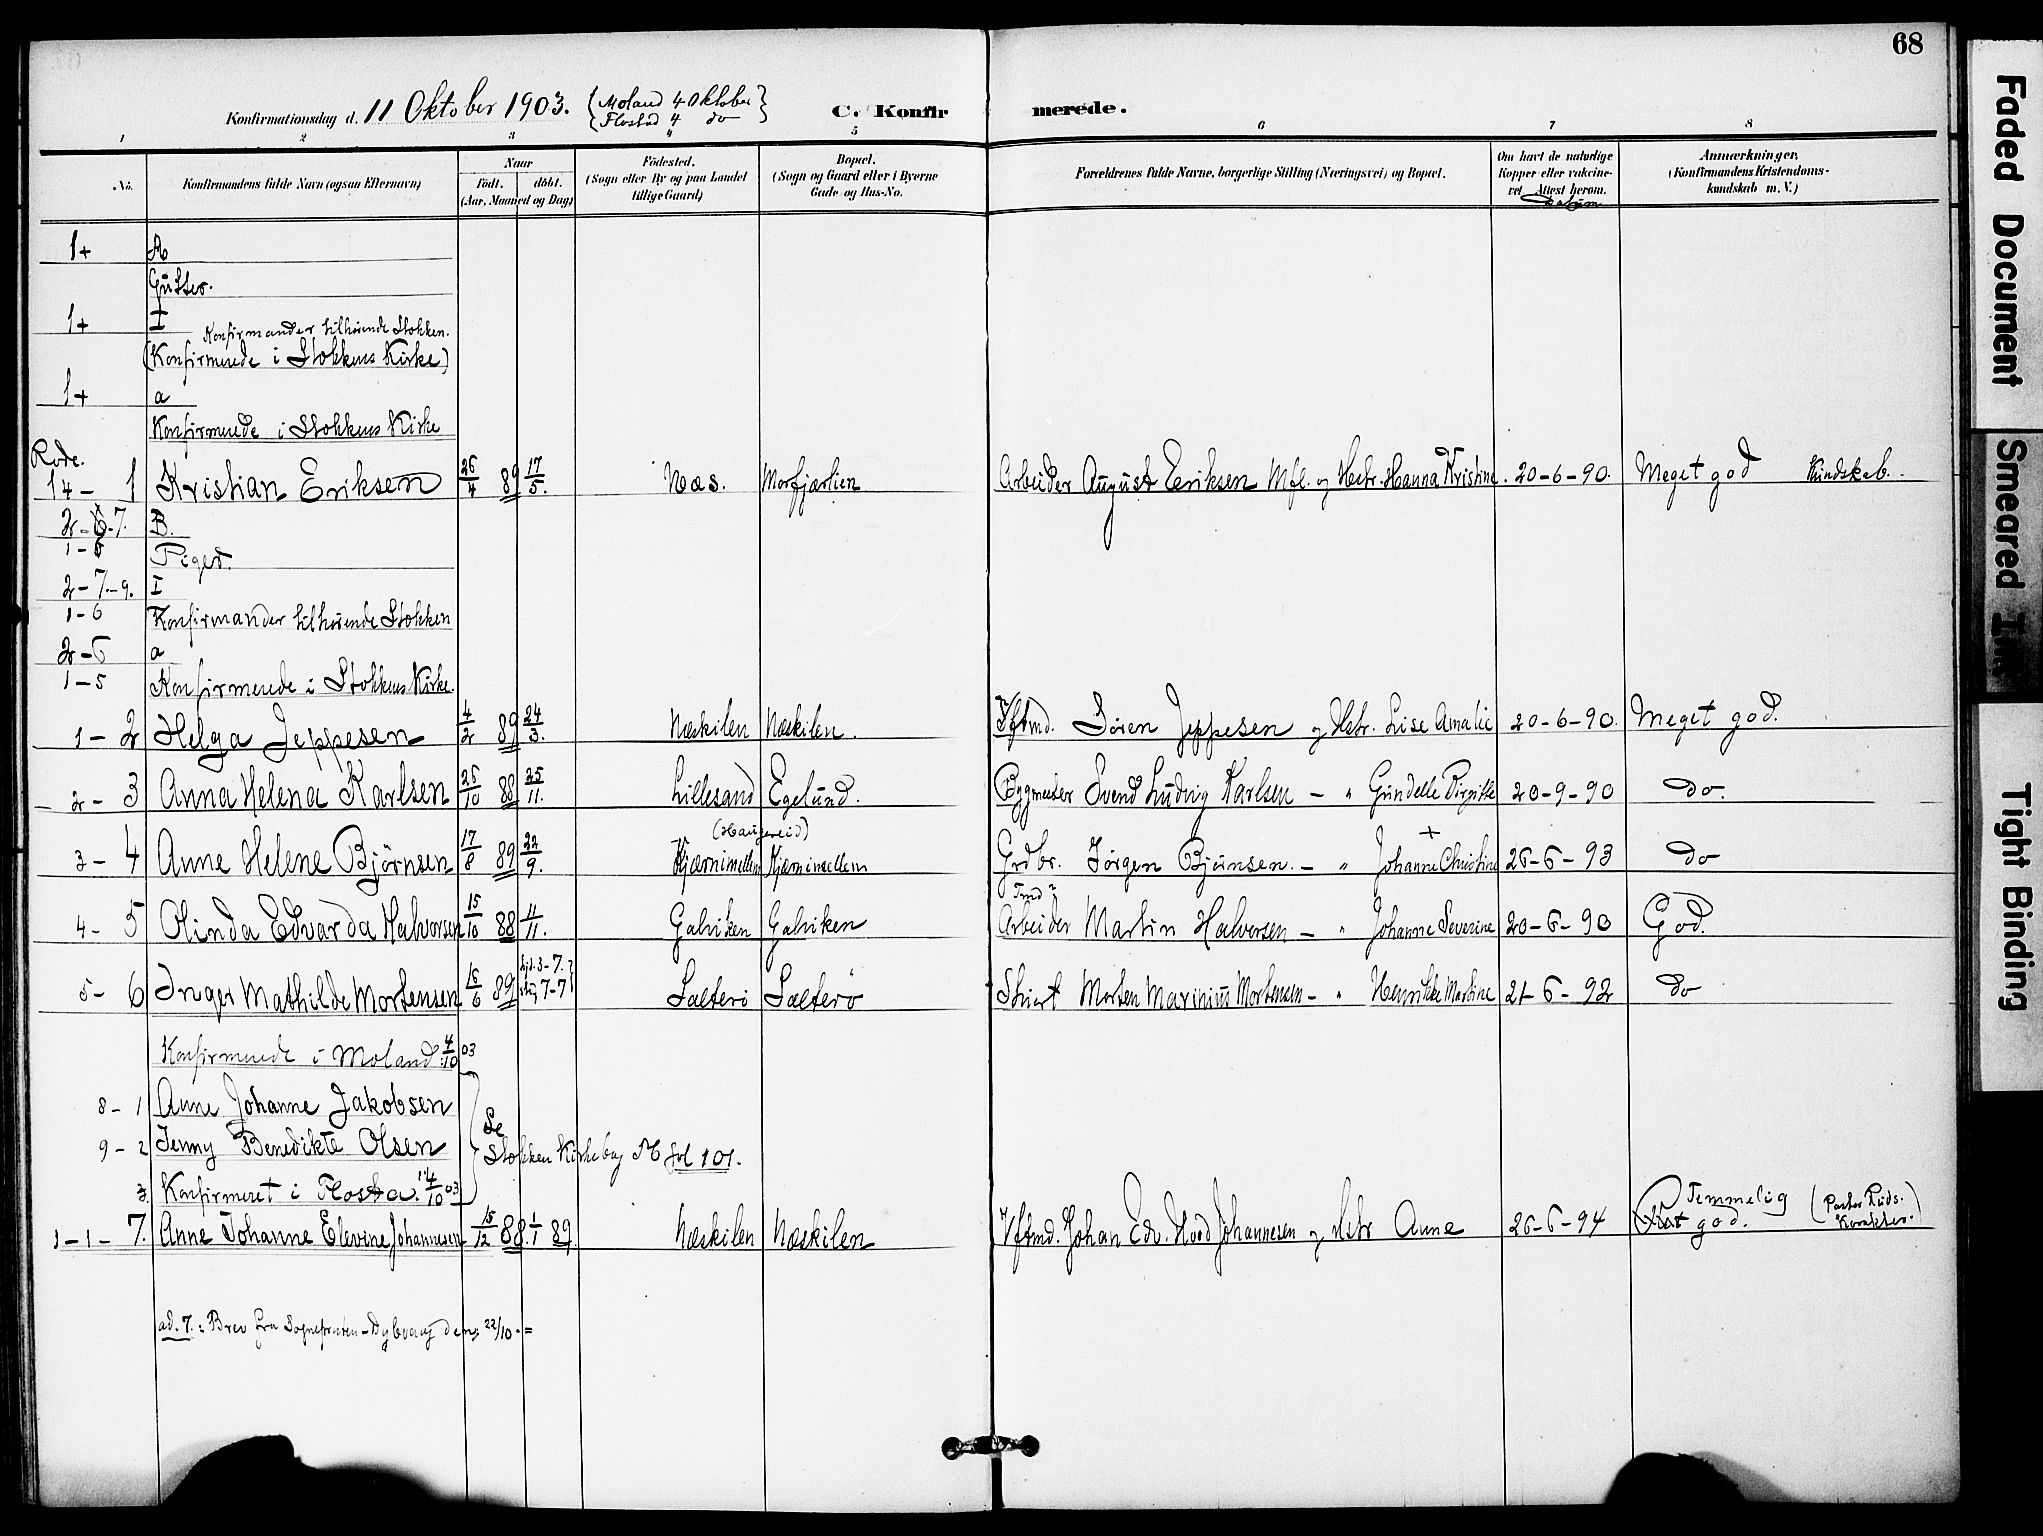 68
Konfirmationsdag d. 11 Oktober 1903. (Moland 4 Oktober
Flostad 4 do)
C. Konfirmerede.
1 2 3 4 5 6 7 8
No. Konfirmandens fulde Navn (ogsaa Efternavn) Naar født. døbt. (Aar, Maaned og Dag) Fødested. (Sogn eller By og paa Landet tillige Gaard) Bopæl. (Sogn og Gaard eller i Byerne Gade og Hus-No. Forældrenes fulde Navne, borgerlige Stilling (Næringsvei) og Bopæl. Om havt de naturlige Kopper eller vakcineret. Attest herom. Datum Anmærkninger. (Konfirmandens Kristendomskundskab m. V.)
1+ A
Gutter.
1+ I Konfirmander tilhørende Stokken.
(Konfirmerede i Stokkens Kirke)
1+ a
Konfirmerede i Stokkens Kirke
Rode.
14 - 1 Kristian Eriksen 26/4 89 17/5. Næs. Morfjærlien Arbeider August Eriksen Mfl. og Hstr. Hanna Kristine. 20-6-90. Meget god Kundskab.
2-6-7. B.
1-6 Piger.
2-7-9. I
1-6 Konfirmander tilhørende Stokken
2-6 a
1-5 Konfirmerede i Stokkens Kirke.
1 - 2 Helga Jeppesen 4/2 89 24/3. Næskilen Næskilen. Søren Jeppesen og Hstr. Lise Amalie 20-6-90. Meget god.
2 - 3 Anna Helena Karlsen 26/10 88 25/11. Lillesand Egelund. Bygmester Svend Ludvig Karlsen - " Gundelle Birgitte 20-9-90 do.
(Haugereid)
3 - 4 Anne Helene Bjørnsen 17/8 89 22/9. Kjærnimellem Kjærnimellem Grdbr. Jørgen Bjørnsen. - " Johanne Christine + 26-6-93 do
4 - 5 Olinda Edvarda Halvorsen 15/10 88 11/11. Galviken Galviken Arbeider Martin Halvorsen - " Johanne Severine 20-6-90 God.
5 - 6 Inger Mathilde Mortensen 16/6 89 3-7. 7-7 Sælterø Sælterø Morten Marinius Mortensen - " Henrikke Martine 21-6-92 do
Konfirmerede i Moland 4/10 03
8 - 1 Anne Johanne Jakobsen
Se
9 - 2 Jenny Benedikte Olsen
Stokken Kirkebog fol 101.
3. Konfirmeret i Flosta. 4/10 03
1-1-7. Anne Johanne Elevine Johannesen 15/12 88. 1/1 89. Næskilen Næskilen Johan Edv. Johannesen og Hstr Anne 26-6-94 Temmelig god. (Pastor Ruds. Karakter.)
ad. 7.: Brev fra Sognepresten - Dybvaag den 22/10. =
Faded Document
Smeared Ink
Tight Binding